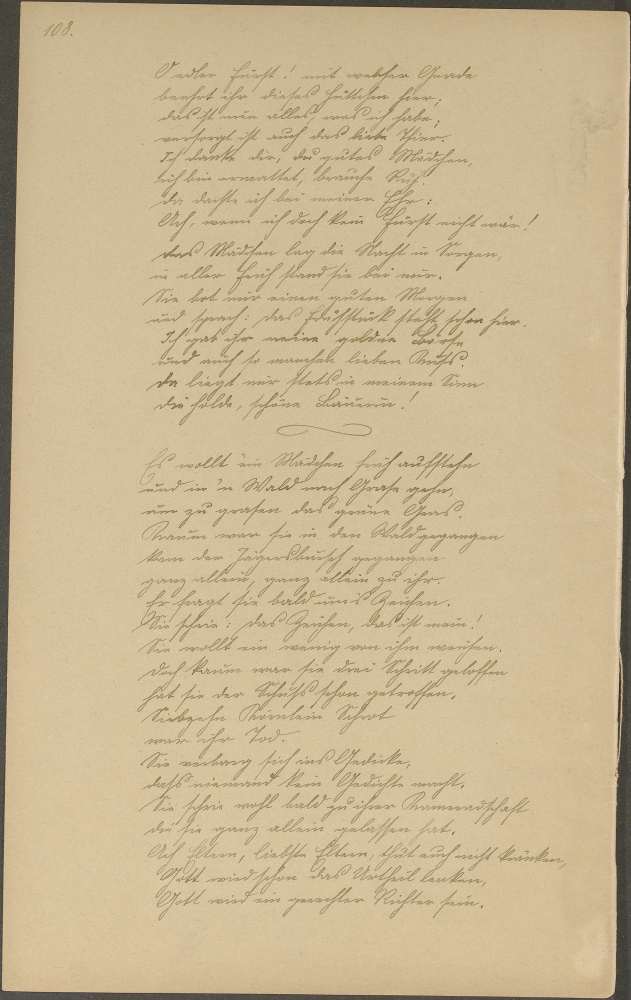 108.
O edler Fürst! mit welcher Gnade
beehrt ihr dieses Hüttchen hier,
das ist nun alles, was ich habe;
versorgt ist auch das liebe Thier.
Ich danke dir, du gutes Mädchen,
ich bin ermattet, brauche Ruh'.
Da dachte ich bei meiner Ehr:
Ach, wenn ich doch kein Fürst nicht wär!
Das Mädchen lag die Nacht in Sorgen,
in aller Früh stand sie bei mir.
Sie bot mir einen guten Morgen
und sprach: das Frühstück steht schon hier.
Ich gab ihr meine goldne Börse
und auch so manchen lieben Kuß.
Da liegt mir stets in meinem Sinn
die holde, schöne Bäuerin!
Es wollt ein Mädchen früh aufstehn
und in 'n Wald nach Grase gehn,
um zu grasen das grüne Gras.
Kaum war sie in den Wald gegangen
kam der Jägersbursch gegangen
ganz allein, ganz allein zu ihr.
Er fragt sie bald um's Zeichen.
Sie schrie: das Zeichen, das ist mein!
Sie wollt ein wenig von ihm weichen.
Doch kaum war sie drei Schritt geloffen
hat sie der Schuß schon getroffen.
Siebzehn Körnlein Schrot
war ihr Tod.
Sie verbarg sich ins Gedicke,
daß niemand kein Gedichte macht.
Sie schrie wohl bald zu ihrer Kameradschaft
die sie ganz allein gelassen hat.
Ach Eltern, liebste Eltern, thut euch nicht kränken,
Gott wird schon das Urtheil lenken,
Gott wird ein gerechter Richter sein.